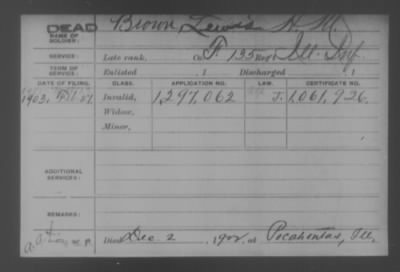 DEAD
NAME OF SOLDIER: Brown, Lewis H. M.
SERVICE: Late rank, Co. F, 135 Reg't Ill. Inf.
TERM OF SERVICE: Enlisted , 1 Discharged , 1
DATE OF FILING. CLASS. APPLICATION NO. LAW. CERTIFICATE NO.
1903, Invalid, 1,297,062 J. 1,061,926.
Widow,
Minor,
ADDITIONAL SERVICES:
REMARKS:
Died Dec. 2, 190 , at Pocahontas, Ill.